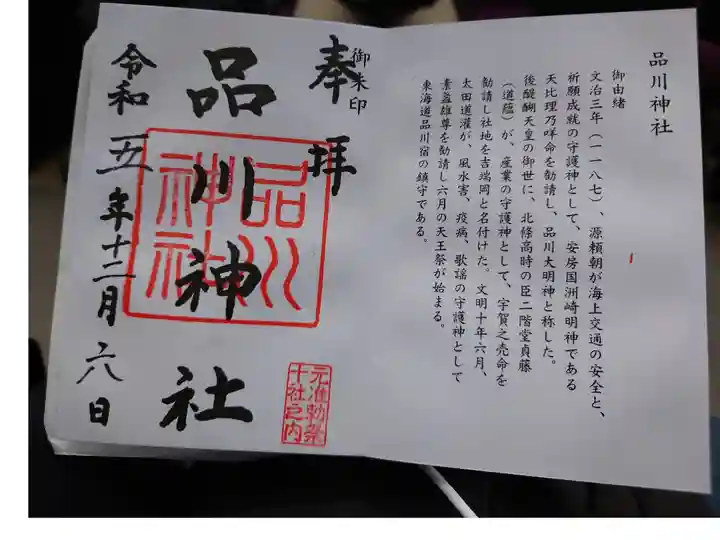 品川神社
御由緒
文治三年(一一八七)、源頼朝が海上交通の安全と、
祈願成就の守護神として、安房国洲崎明神である
天比理乃咩命を勧請し、品川大明神と称した。
後醍醐天皇の御世に、北條高時の臣二階堂貞藤
(道蘊)が、産業の守護神として、宇賀之売命を
勧請し社地を吉端岡と名付けた。文明十年六月、
太田道灌が、風水害、疫病、歌謡の守護神として
素盞雄尊を勧請し六月の天王祭が始まる。
東海道品川宿の鎮守である。
御朱印
奉拝
品川神社
品川
神社
元准勅祭
十社之内
令和五年十二月六日